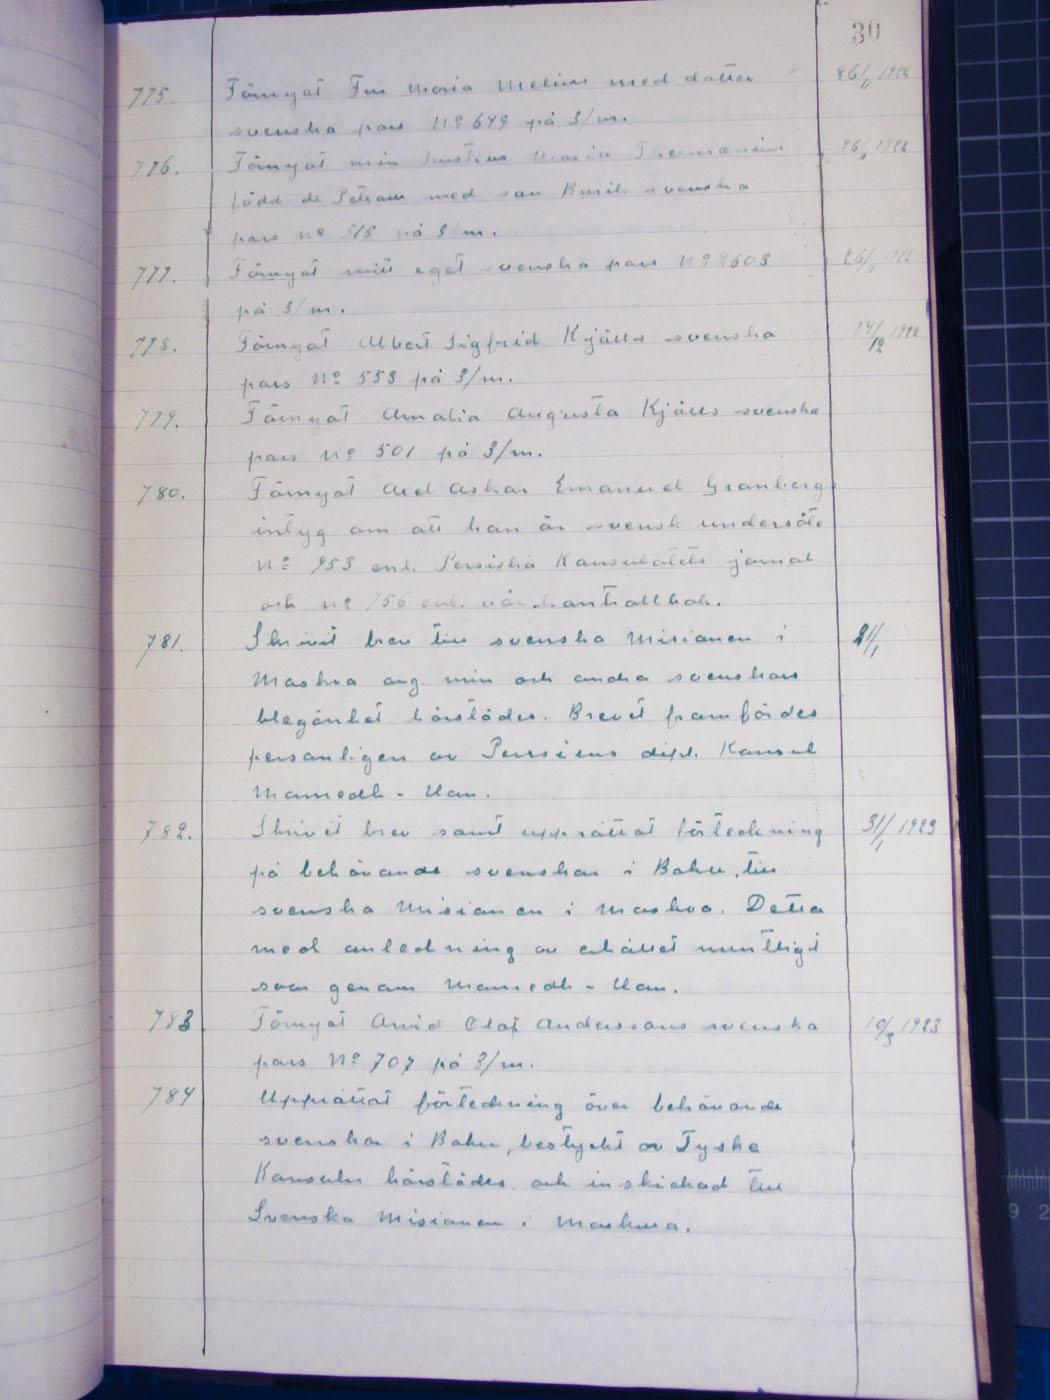 30
775. Förnyat Fru Maria Melins med dotter 26/11 1922
svenska pass Nº 649 på 3/m.
776. Förnyat min hustrus Maria 26/11 1922
född de med son svenska
pass nº 515 på 3/m.
777. Förnyat mitt eget svenska pass Nº 2603 26/11 1922
på 3/m.
778. Förnyat Albert Sigfrid Kjälls svenska 14/12 1922
pass Nº 553 på 3/m.
779. Förnyat Amalia Augusta Kjälls svenska
pass Nº 501 på 3/m.
780. Förnyat Axel Oskar Emanuel Granbergs
intyg om att han är svensk undersåte
Nº 953 enl. Persiska Konsulatets jornal
och nº 756 enl. vår kontrollbok.
781. Skrivit brev till svenska Misionen i 21/1
Moskva ang. min och andra svenskars
belägenhet härstädes. Brevet framfördes
personligen av Persiens dipl. Konsul
Mamedh - Han.
782. Skrivit brev samt upprättat förteckning 31/1 1923
på behövande svenskar i Baku, till
svenska Misionen i Moskva. Detta
med anledning av erhållet muntligt
svar genom Mamedh - Han.
783 Förnyat Arvid Olof Anderssons svenska 10/3 1923
pass Nº 707 på 3/m.
784 Upprättat förteckning över behövande
svenskar i Baku, bestyrkt av Tyske
Konsuln härstädes och inskickad till
Svenska Misionen i Moskwa.